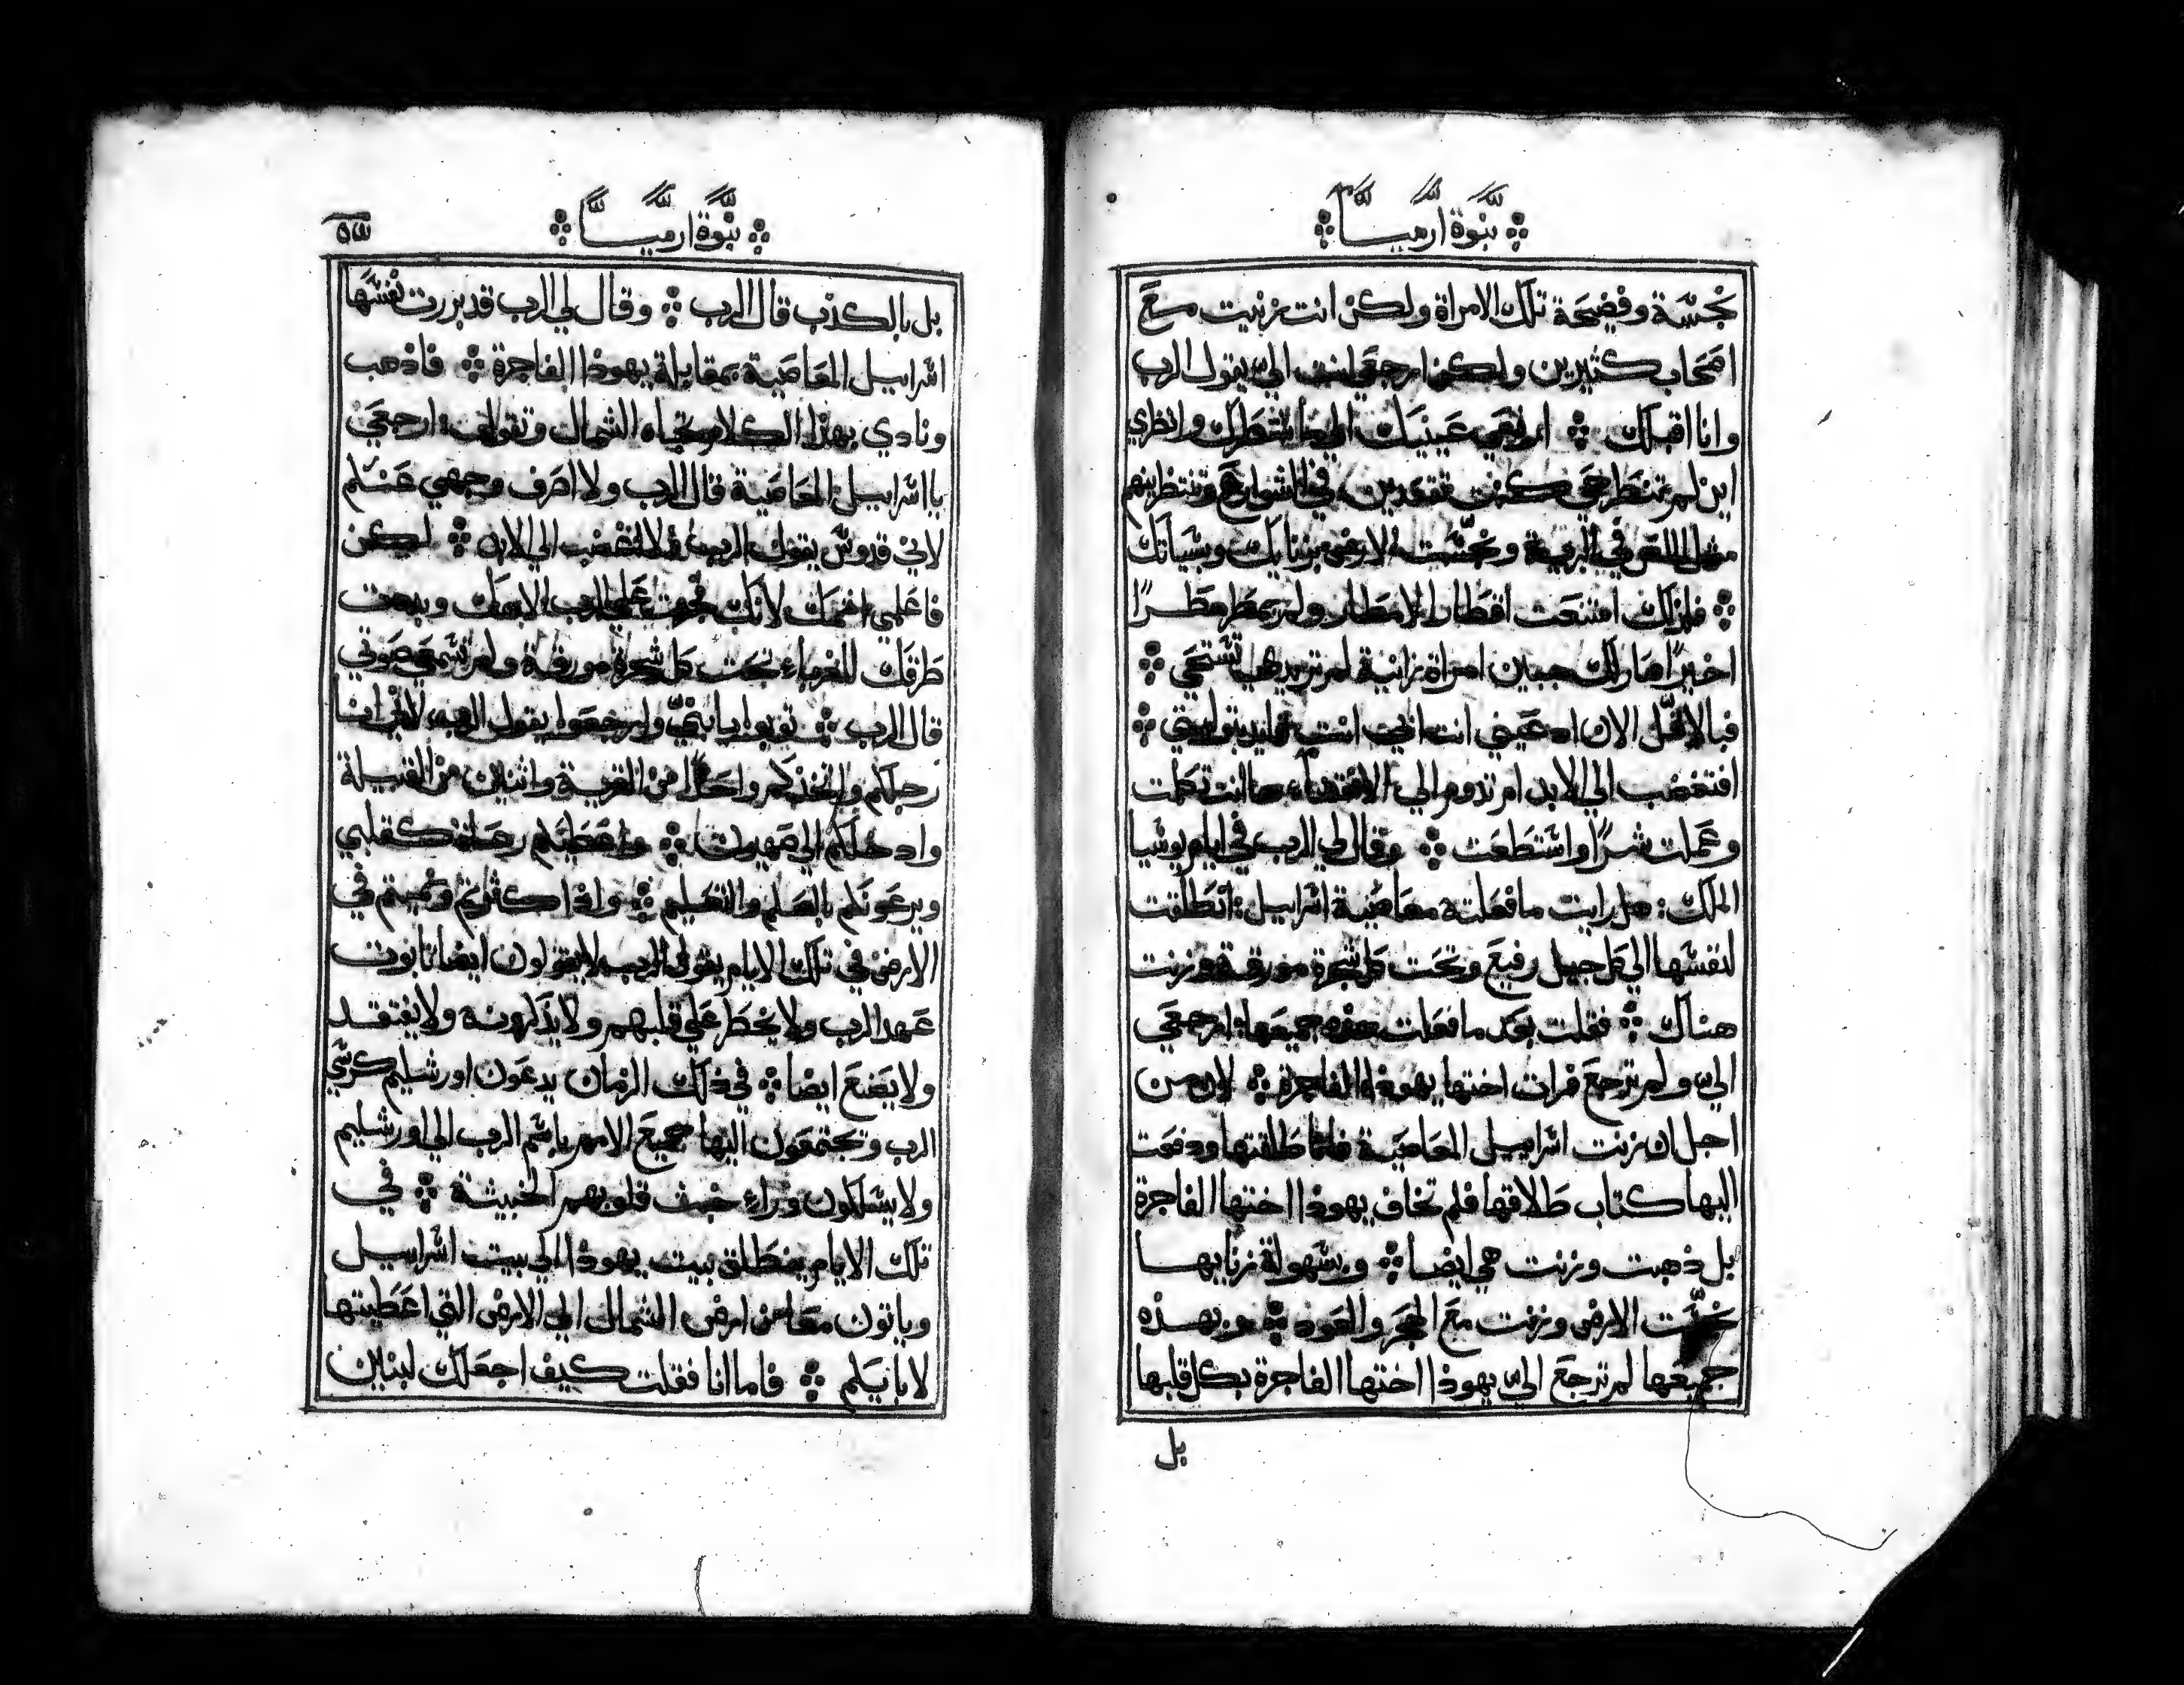 نبوة ارميا
نجسة وفضيحة تلك الامراة ولكن انت زنيت مع
اصحاب كثيرين ولكن ارجعي انت الي يقول الرب
وانا اقبلك ارفعي عينيك الي وانظري
اين لم كنت تقعدين في الشوارع وتنتظرينهم
مثل اللص في البرية ونجست الارض بزنايك وبسياتك
فلذلك امتنعت اقطار الامطار ولم يمطر مطرًا
اخيرًا صار لك جبين امراة زانية لم تريدي تستحي
فبالاقل الان ادعيني انت ابي انت بتوليتي
افتغضب الي الابد ام تدوم الي الانقضاء ها انت تكلمت
وعملت شرًا واستطعت وقال لي الرب في ايام يوشيا
الملك: هل رايت ما فعلته معاصية اسراييل: انطلقت
لنفسها الي كل جبل رفيع وتحت كل شجرة مورقة وزنت
هناك فقلت بعد ما فعلت هذه جميعها: ارجعي
الي ولم ترجع فرات اختها يهوذا الفاجرة لان من
اجل ان زنت اسراييل المعاصية فانا طلقتها ودفعت
اليها كتاب طلاقها فلم تخاف يهوذا اختها الفاجرة
بل ذهبت وزنت هي ايضا وبسهولة زنايها
نجست الارض وزنت مع الحجر والعود وبهذه
جميعها لم ترجع الي يهوذا اختها الفاجرة بكل قلبها
بل
نبوة ارميا
بل بالكذب قال الرب وقال لي الرب قد بررت نفسها
اسراييل المعاصية بمقابلة يهوذا الفاجرة فاذهب
ونادي بهذا الكلام تجاه الشمال وتقول: ارجعي
يا اسراييل المعاصية قال الرب ولا اصرف وجهي عنكم
لاني قدوس يقول الرب فلا اغضب الي الابد لكن
فاعلمي اثمك لانك فجرت علي الرب الاهك وبددت
طرقك للغرباء تحت كل شجرة مورقة ولم تسمعي صوتي
قال الرب توبوا يا بني وارجعوا يقول الرب لاني انا
رجلكم واتخذكم واحدًا من القرية واثنين من القبيلة
وادخلكم الي صهيون واعطيكم رعاة كقلبي
ويرعونكم بالعلم والتعليم واذا كثرتم ونميتم في
الارض في تلك الايام يقول الرب لا يقولون ايضا تابوت
عهد الرب ولا يخطر علي قلبهم ولا يذكرونه ولا يفتقد
ولا يصنع ايضا في ذلك الزمان يدعون اورشليم كرسي
الرب وتجتمعون اليها جميع الامم باسم الرب الي اورشليم
ولا يسلكون وراء خبث قلوبهم الخبيثة في
تلك الايام ينطلق بيت يهوذا الي بيت اسراييل
وياتون معا من ارض الشمال الي الارض التي اعطيتها
لابايكم فاما انا فقلت كيف اجعلك لبنين